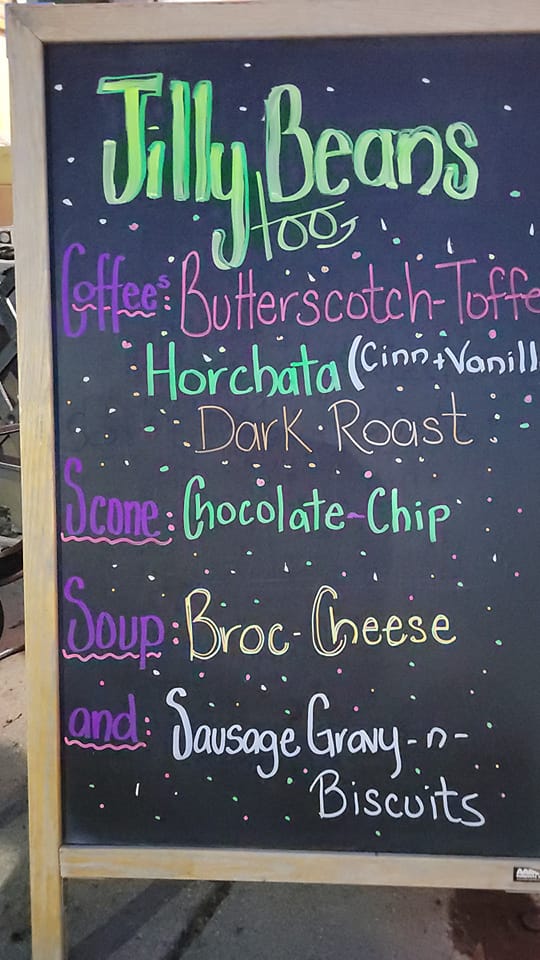 Jilly Beans
too
Coffees: Butterscotch-Toffe
Horchata (Cinn+Vanill
Dark Roast
Scone: Chocolate-Chip
Soup: Broc-Cheese
and: Sausage Gravy-n-
Biscuits